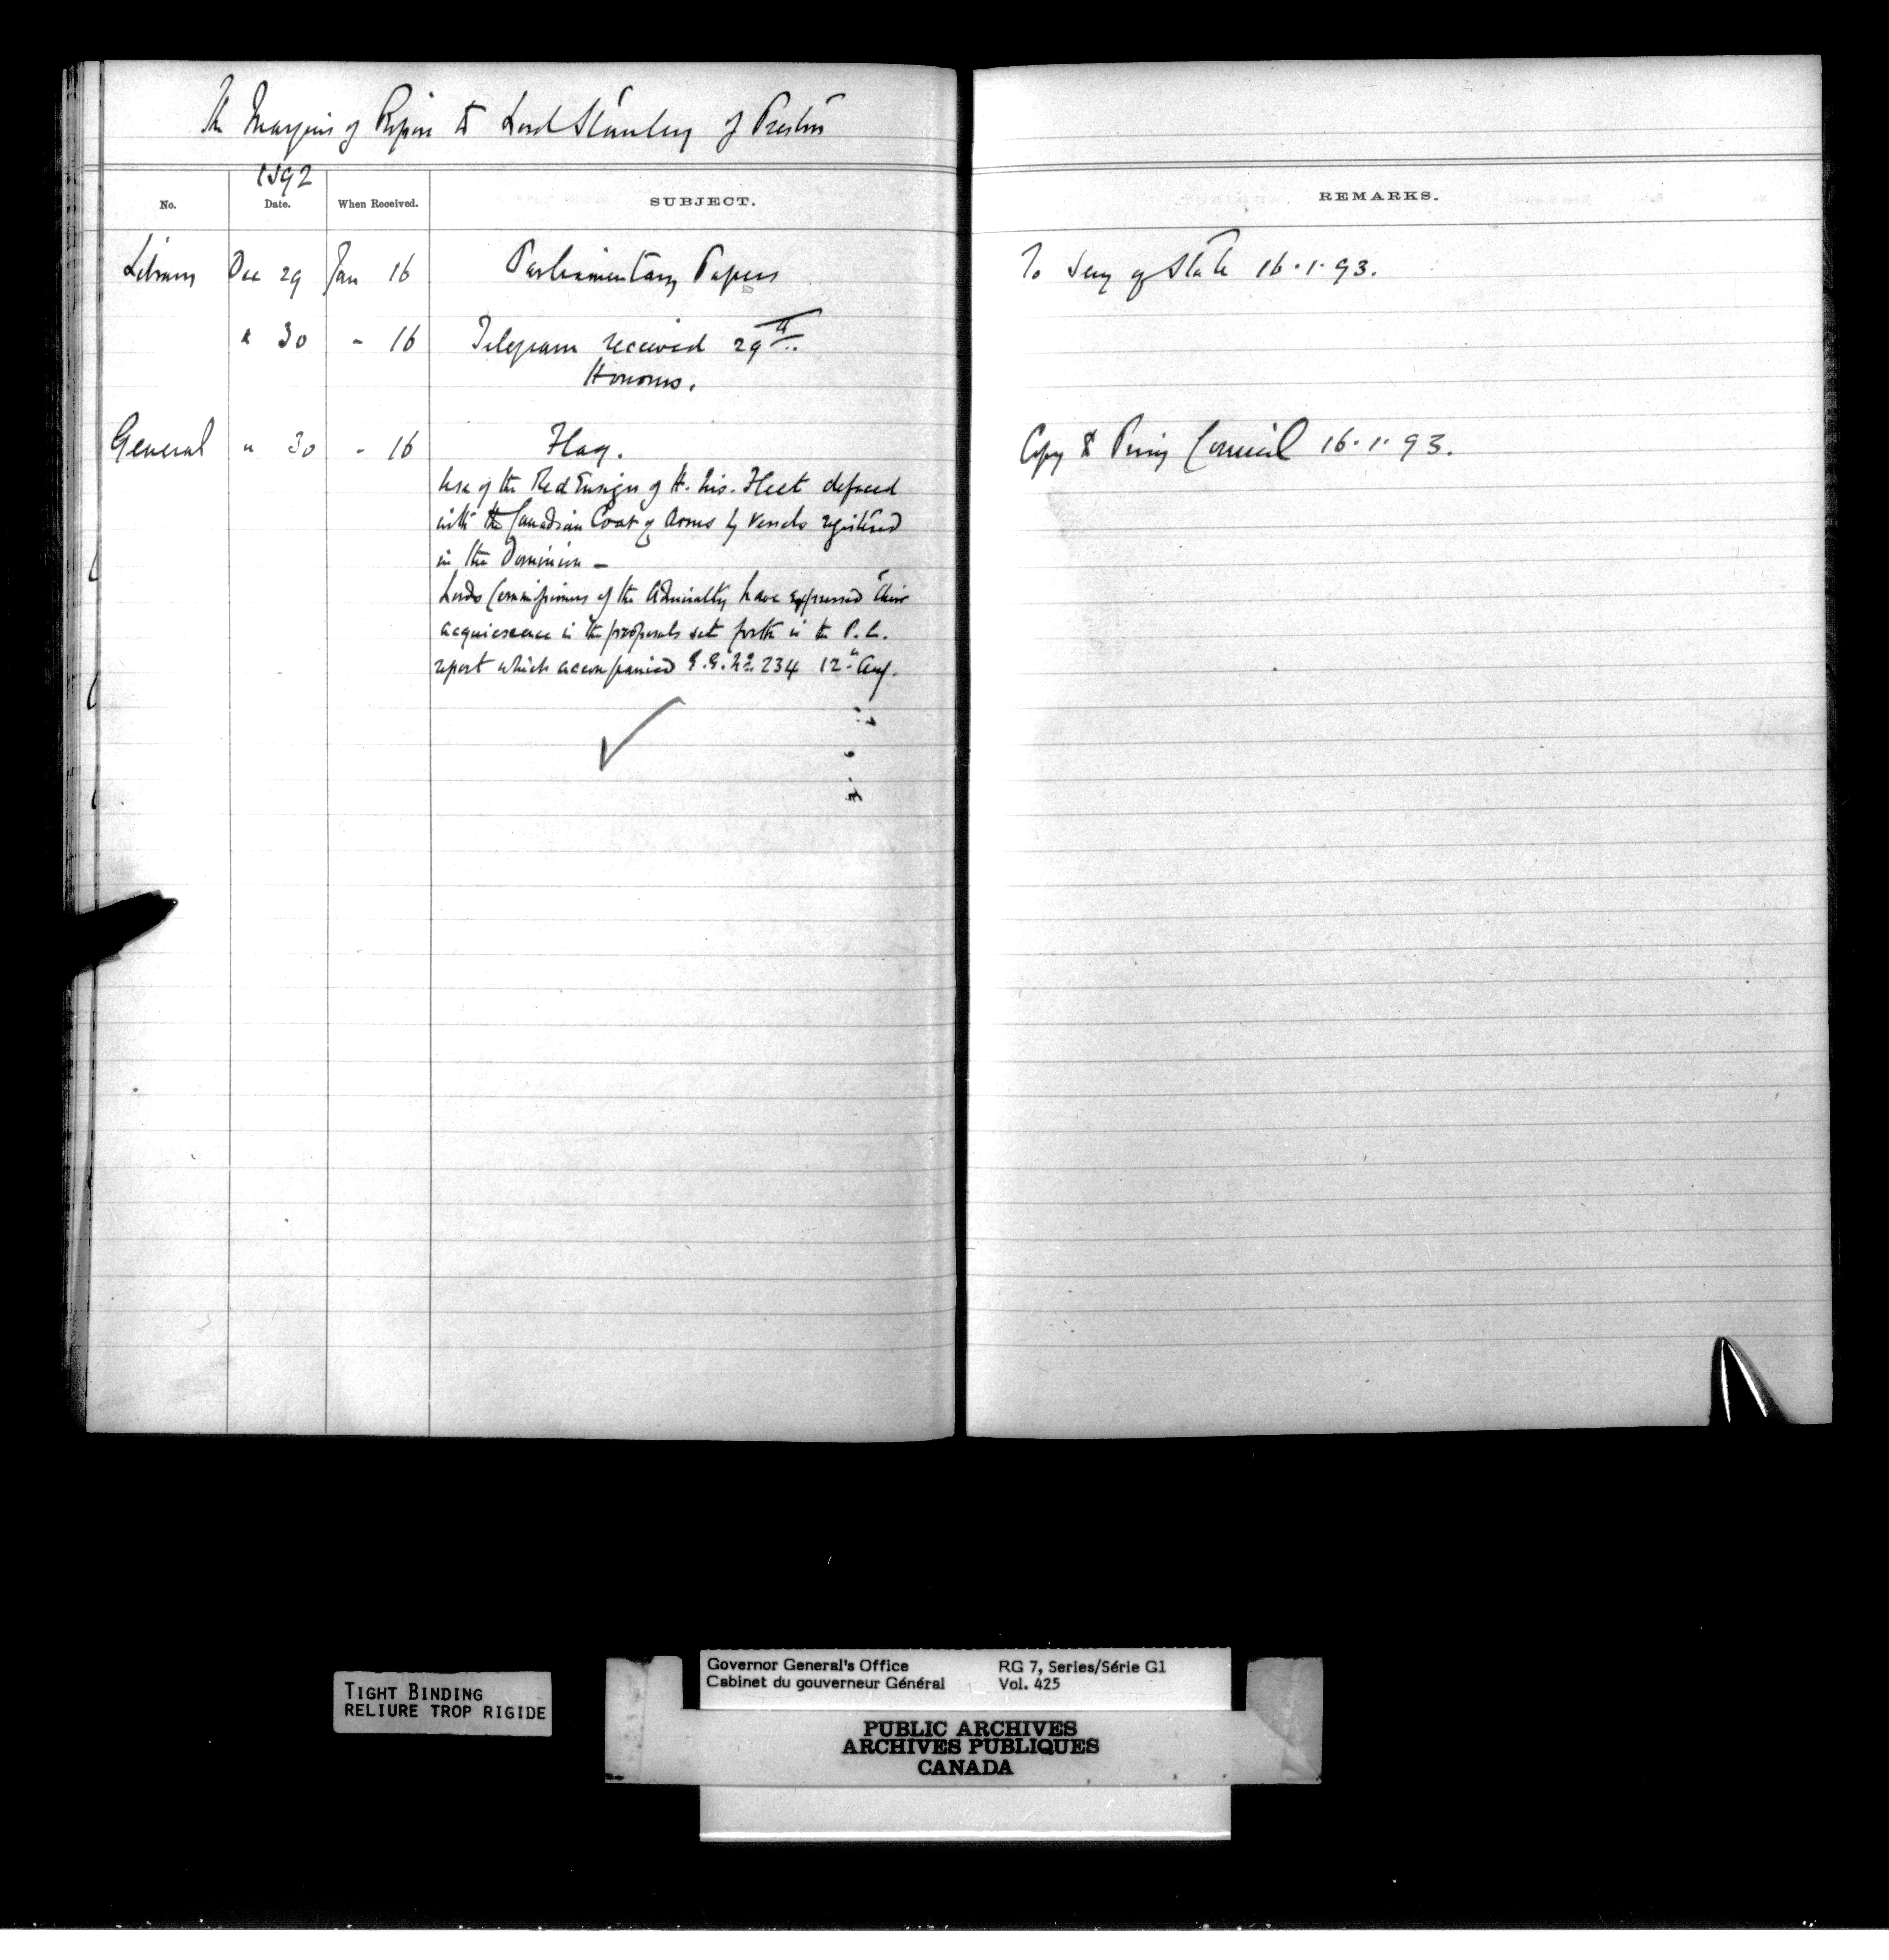 The Marquis of Ripon to Lord Stanley of Preston
1892
No. Date. When Received. SUBJECT. REMARKS.
Library Dec 29 Jan 16 Parliamentary Papers To Secy of State 16.1.93.
" 30 - 16 Telegram received 29th.
Honours.
General " 30 - 16 Flag. Copy to Privy Council 16.1.93.
Use of the Red Ensign of H. Mjs. Fleet defaced
with the Canadian Coat of Arms by Vessels registered
in the Dominion -
Lords Commissioners of the Admiralty have expressed their
acquiescence in the proposals set forth in the P.C.
report which accompanied G.G. No. 234 12th Aug.
TIGHT BINDING
RELIURE TROP RIGIDE
Governor General's Office RG 7, Series/Série G1
Cabinet du gouverneur Général Vol. 425
PUBLIC ARCHIVES
ARCHIVES PUBLIQUES
CANADA